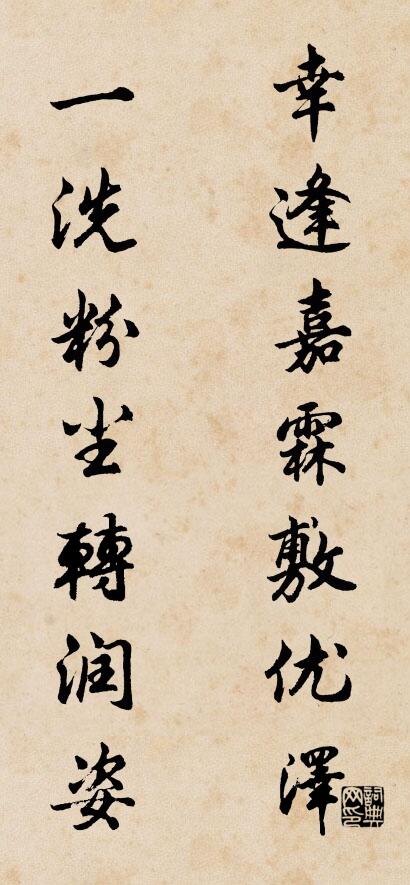 幸逢嘉霖敷优澤
一洗粉尘轉润姿
詞典网印